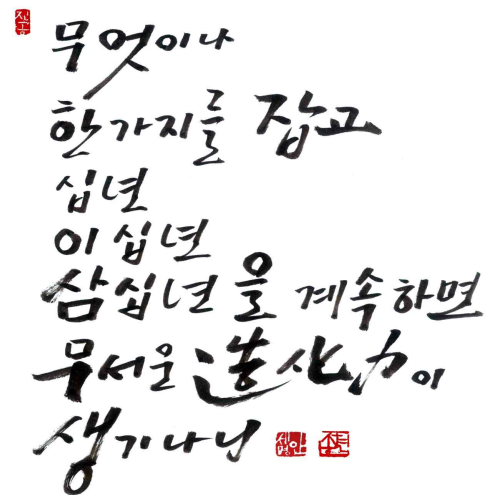 무엇이나
한가지를 잡고
십년
이십년
삼십년을 계속하면
무서운 造化力이
생기나니